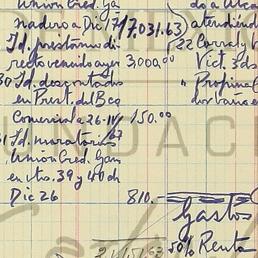 Union Créd. Ga
nadero a Dic 17 17.031.63
Id. préstamo di-
recto vencido ayer 3,000.00
30 Id. descontados
en Prest. del Bco
Comercial a 26-IV 150.00
31 Id. moratorias
Union Créd. Gan
en cta. 39 y 40 ch
Dic 26 810.-
do a
atendiendo
22 Corral y
Vict. 3 ds
" Propina
dos varios
Gastos
50% Renta